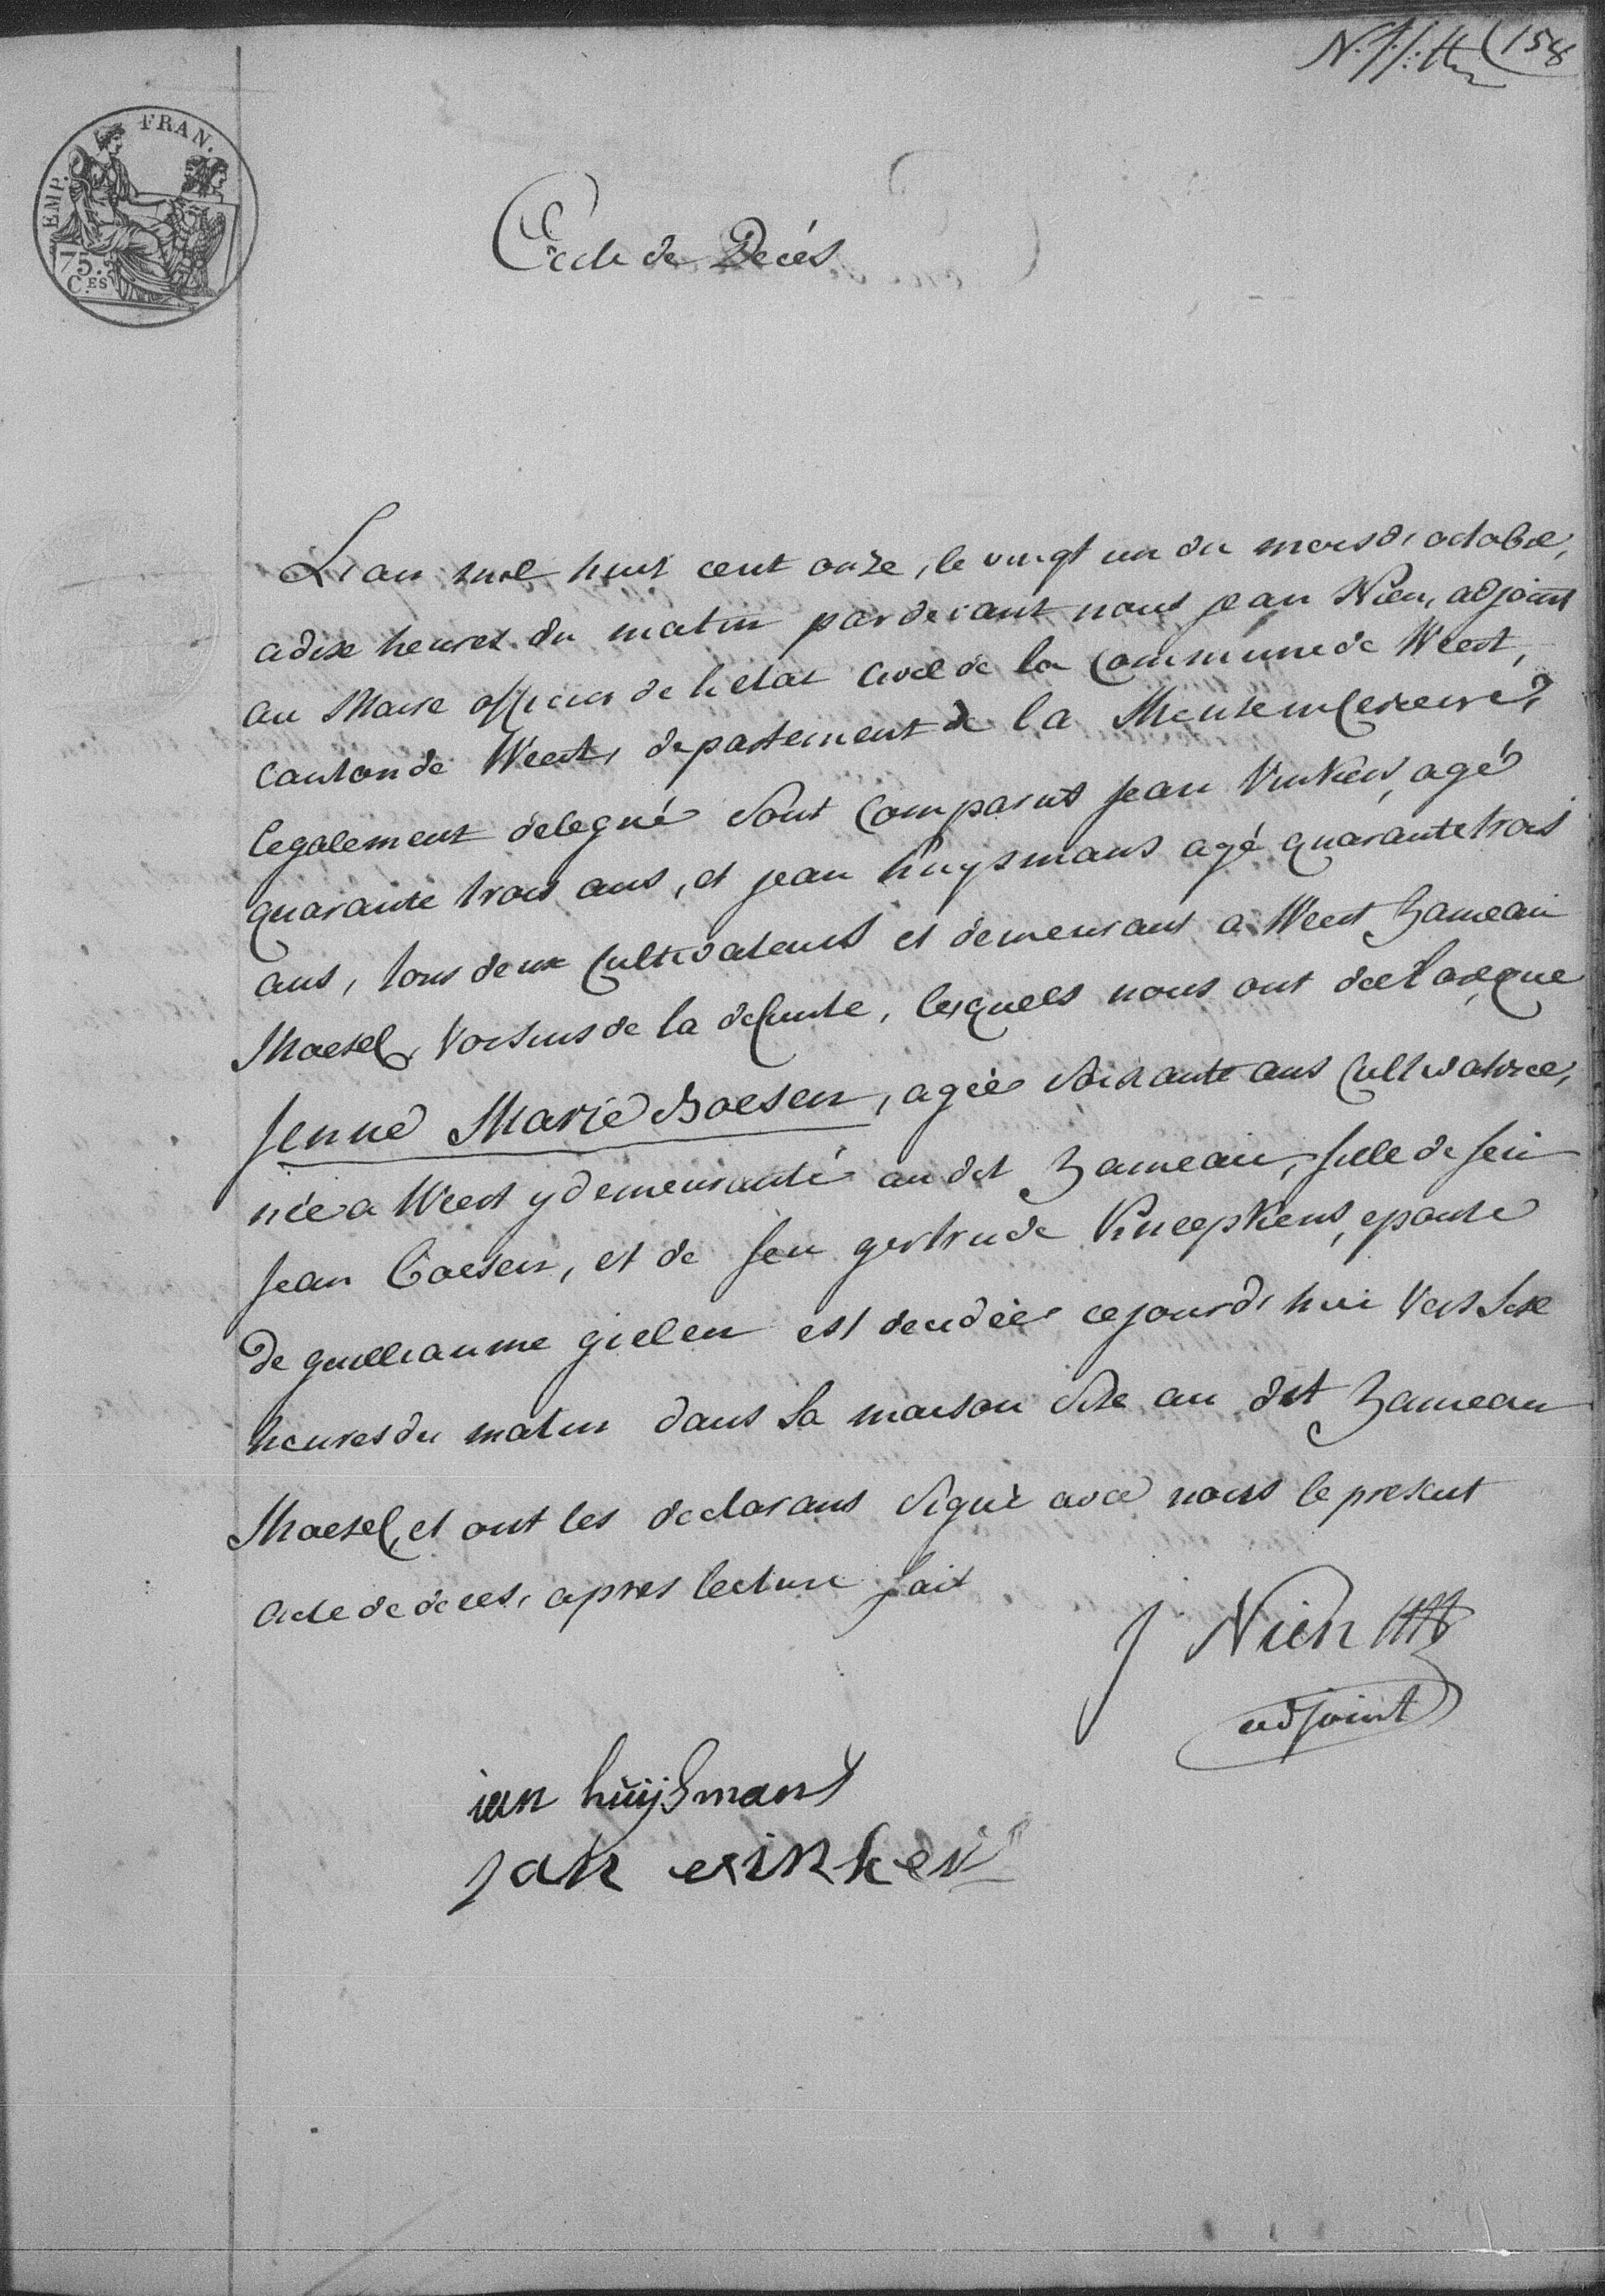 (158
EMP. FRAN.
75.
C.ES
Acte de Decés
L'an mil huit cent onze, le vingt un du mois d'octobre,
a dix heures du matin pardevant nous jean Nien, adjoint
au Maire officier de l'etat Civil de la Commune de Weert,
Canton de Weert, departement de la Meuse inferieure,
legalement delegué sont Comparus jean Vinken, agé
quarante trois ans, et jean huysmans agé quarante trois
ans, tous deux Cultivateurs et demeurant a Weert hameau
Moesel, voisins de la defunte, lesquels nous ont declaré que
Jenne Marie Boesen, agée soixante ans Cultivatrice,
née a Weert y demeurante au dit hameau, fille de feu
jean Coesen, et de feu gertrude Kneepkens, epouse
de guilliaume gielen est decedée ce jourd'hui vers six
heures du matin dans sa maison size au dit hameau
Moesel, et ont les declarans signé avec nous le present
acte de deces, apres lecture fait
J Nien
adjoint
ian huijsmans
jan vinken